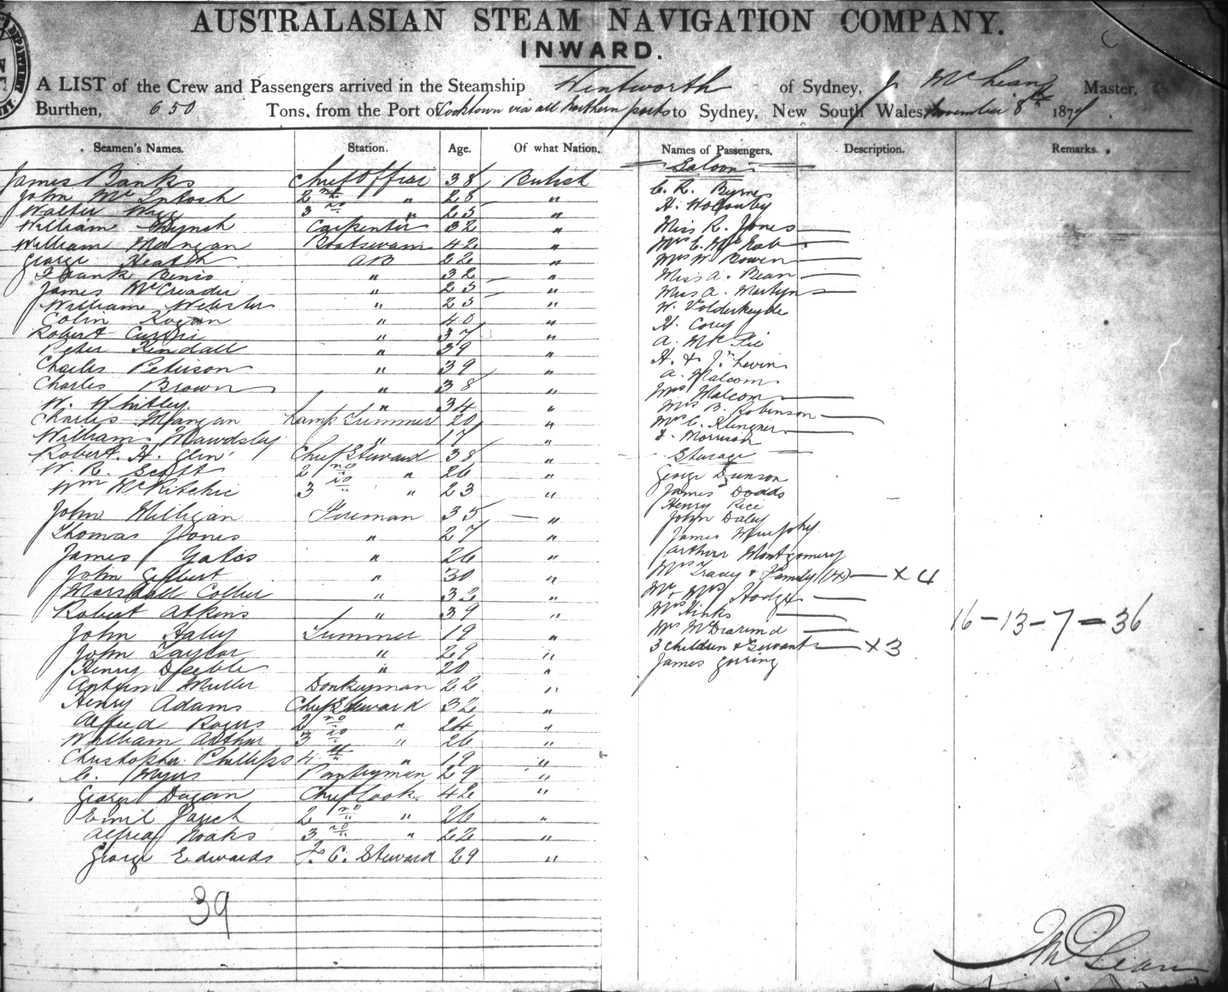 AUSTRALASIAN STEAM NAVIGATION COMPANY.
INWARD.
A LIST of the Crew and Passengers arrived in the Steamship Wentworth of Sydney, J McLean Master,
Burthen, 650 Tons, from the Port of Cooktown via all Northern ports to Sydney, New South Wales November 8th 1879
Seamen's Names. Station. Age. Of what Nation. Names of Passengers. Description. Remarks.
Saloon
James Banks Chief Officer 38 British
John McIntosh 2nd " 28 "
Walter 3rd " 25 "
William Carpenter 32 "
William Mangan Boatswain 42 "
George Heath AB 22 "
Frank " 32 "
James McCreadie " 23 "
William Webster " 23 "
Colin " 40 "
Robert Currie " 37 "
Peter Kendall " 39 "
Charles Peterson " 39 "
Charles Brown " 38 "
W. Whitley " 34 "
Charles Mangan Lamp Trimmer 20 "
William Mawdsley " 17 "
Robert H. Glen Chief Steward 38 "
W. R. Scott 2nd " 26 "
Wm McRitchie 3rd " 23 "
John Milligan Fireman 35 "
Thomas Jones " 27 "
James Yates " 26 "
John Gilbert " 30 "
Marshall Collier " 32 "
Robert Atkins " 39 "
John Haley Trimmer 19 "
John Taylor " 29 "
Henry " 20 "
Muller Donkeyman 22 "
Henry Adams Chief Steward 32 "
Alfred Rogers 2nd " 24 "
William Arthur 3rd " 26 "
Christopher Phillips 4th " 19 "
C. Myers Pantryman 29 "
George Dugan Chief Cook 42 "
Emil 2nd " 26 "
Alfred Noaks 3rd " 22 "
George Edwards F. C. Steward 29 "
39
C. R. Byrnes
H. Wolloughby
Miss R. Jones
Mrs C. McNab
Mrs W Bowen
Miss A. Bean
Miss A. Martyn
W.
H. Corey
A. McKie
H. & J. Levin
A. Malcom
Mrs Malcom
Mrs B. Robinson
Mrs C. Klingner
F. Morrison
Steerage
George Dunson
James Dodds
Henry Rice
John Daley
James Murphy
Arthur Montgomery
Mrs Tracy & Family (4) x 4
Mr & Mrs Hodges
Mrs Hinks
Mrs McDiarmid
3 children & Servant x 3
James Goring
16-13-7=36
J McLean